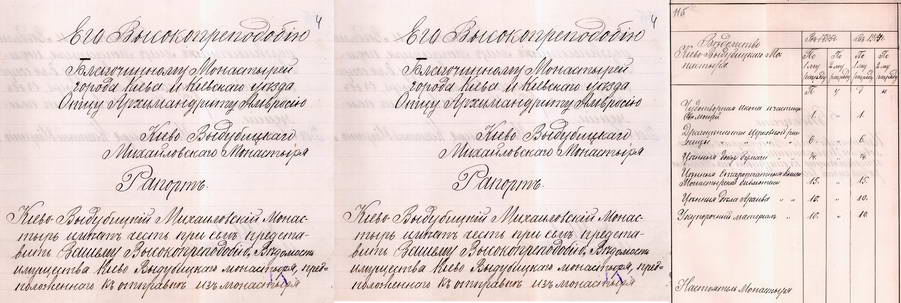 4
Его Высокопреподобію
Благочинному Монастырей
города Кіева и Кіевскаго уѣзда
Отцу Архимандриту Амвросію
Кіево Выдубицкаго
Михайловскаго Монастыря
Рапортъ
Кіево Выдубицкій Михайловскій Монас-
тырь имѣетъ честь при семъ предста-
вить Вашему Высокопреподобію, Вѣдомость
имущества Кіево Выдубицкаго монастыря, пред-
положеннаго къ отправкѣ изъ монастыря
4
Его Высокопреподобію
Благочинному Монастырей
города Кіева и Кіевскаго уѣзда
Отцу Архимандриту Амвросію
Кіево Выдубицкаго
Михайловскаго Монастыря
Рапортъ
Кіево Выдубицкій Михайловскій Монас-
тырь имѣетъ честь при семъ предста-
вить Вашему Высокопреподобію, Вѣдомость
имущества Кіево Выдубицкаго монастыря, пред-
положеннаго къ отправкѣ изъ монастыря
Вѣдомство
Кіево-Выдубицкаго Мо-
настыря
По По По По
разряду разряду разряду разряду
Чудотворная икона и частицы
1. 1.
Драгоцѣнности Церковной риз-
ницы 6. 6.
Цѣнныя бумаги
Цѣнныя
Монастырской библіотеки 15. 15.
Цѣнныя дѣла архива 10. 10.
Укупорочный матеріалъ 10. 10.
Настоятель Монастыря